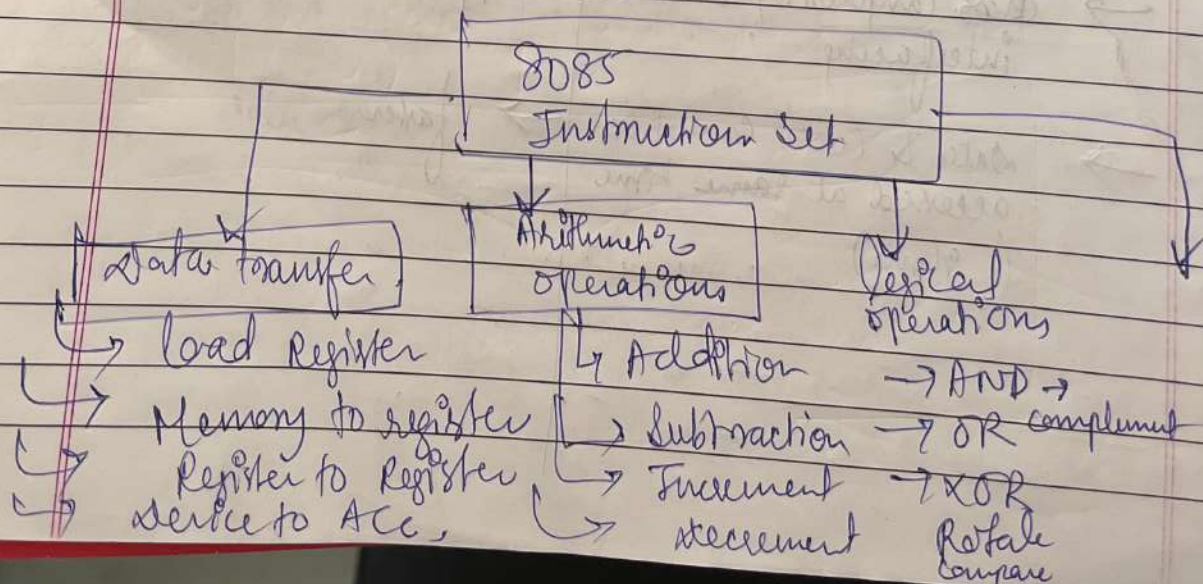 8085
Instruction Set
Data transfer
load Register
Memory to register
Register to Register
Device to Acc.
Arithmetic
operations
Addition
Subtraction
Increment
decrement
Logical
operations
AND
complement
OR
XOR
Rotate
Compare